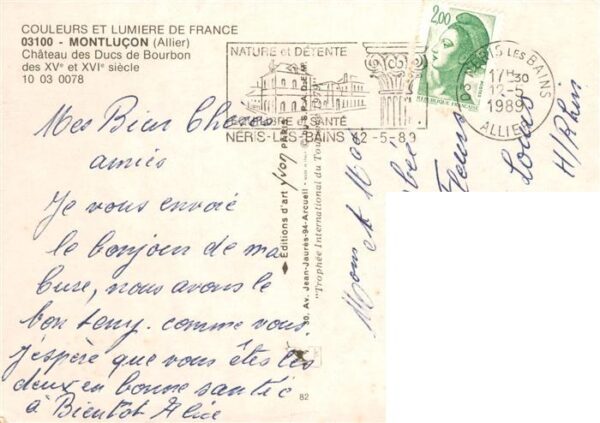 COULEURS ET LUMIERE DE FRANCE
03100 - MONTLUÇON (Allier)
Château des Ducs de Bourbon
des XVᵉ et XVIᵉ siècle
10 03 0078
NATURE et DÉTENTE
ÉQUILIBRE et SANTÉ
NERIS-LES-BAINS 12-5-89
2,00
REPUBLIQUE FRANÇAISE
NERIS LES BAINS
17H30
12-5
1989
ALLIER
Mes Bien Chers
amies
Je vous envoie
le bonjour de ma
cure, nous avons le
bon temps. comme vous
j'espère que vous êtes les
deux en bonne santé
à Bientôt Alice
Editions d'art Yvon PARIS
30, Av. Jean-Jaurès-94-Arcueil
"Trophée International du Tourisme
82
Mons et Mme
Louis
H/Rhin